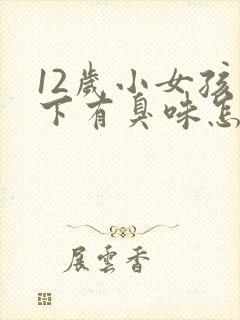 12歲小女孩
下有臭味怎
展雲香